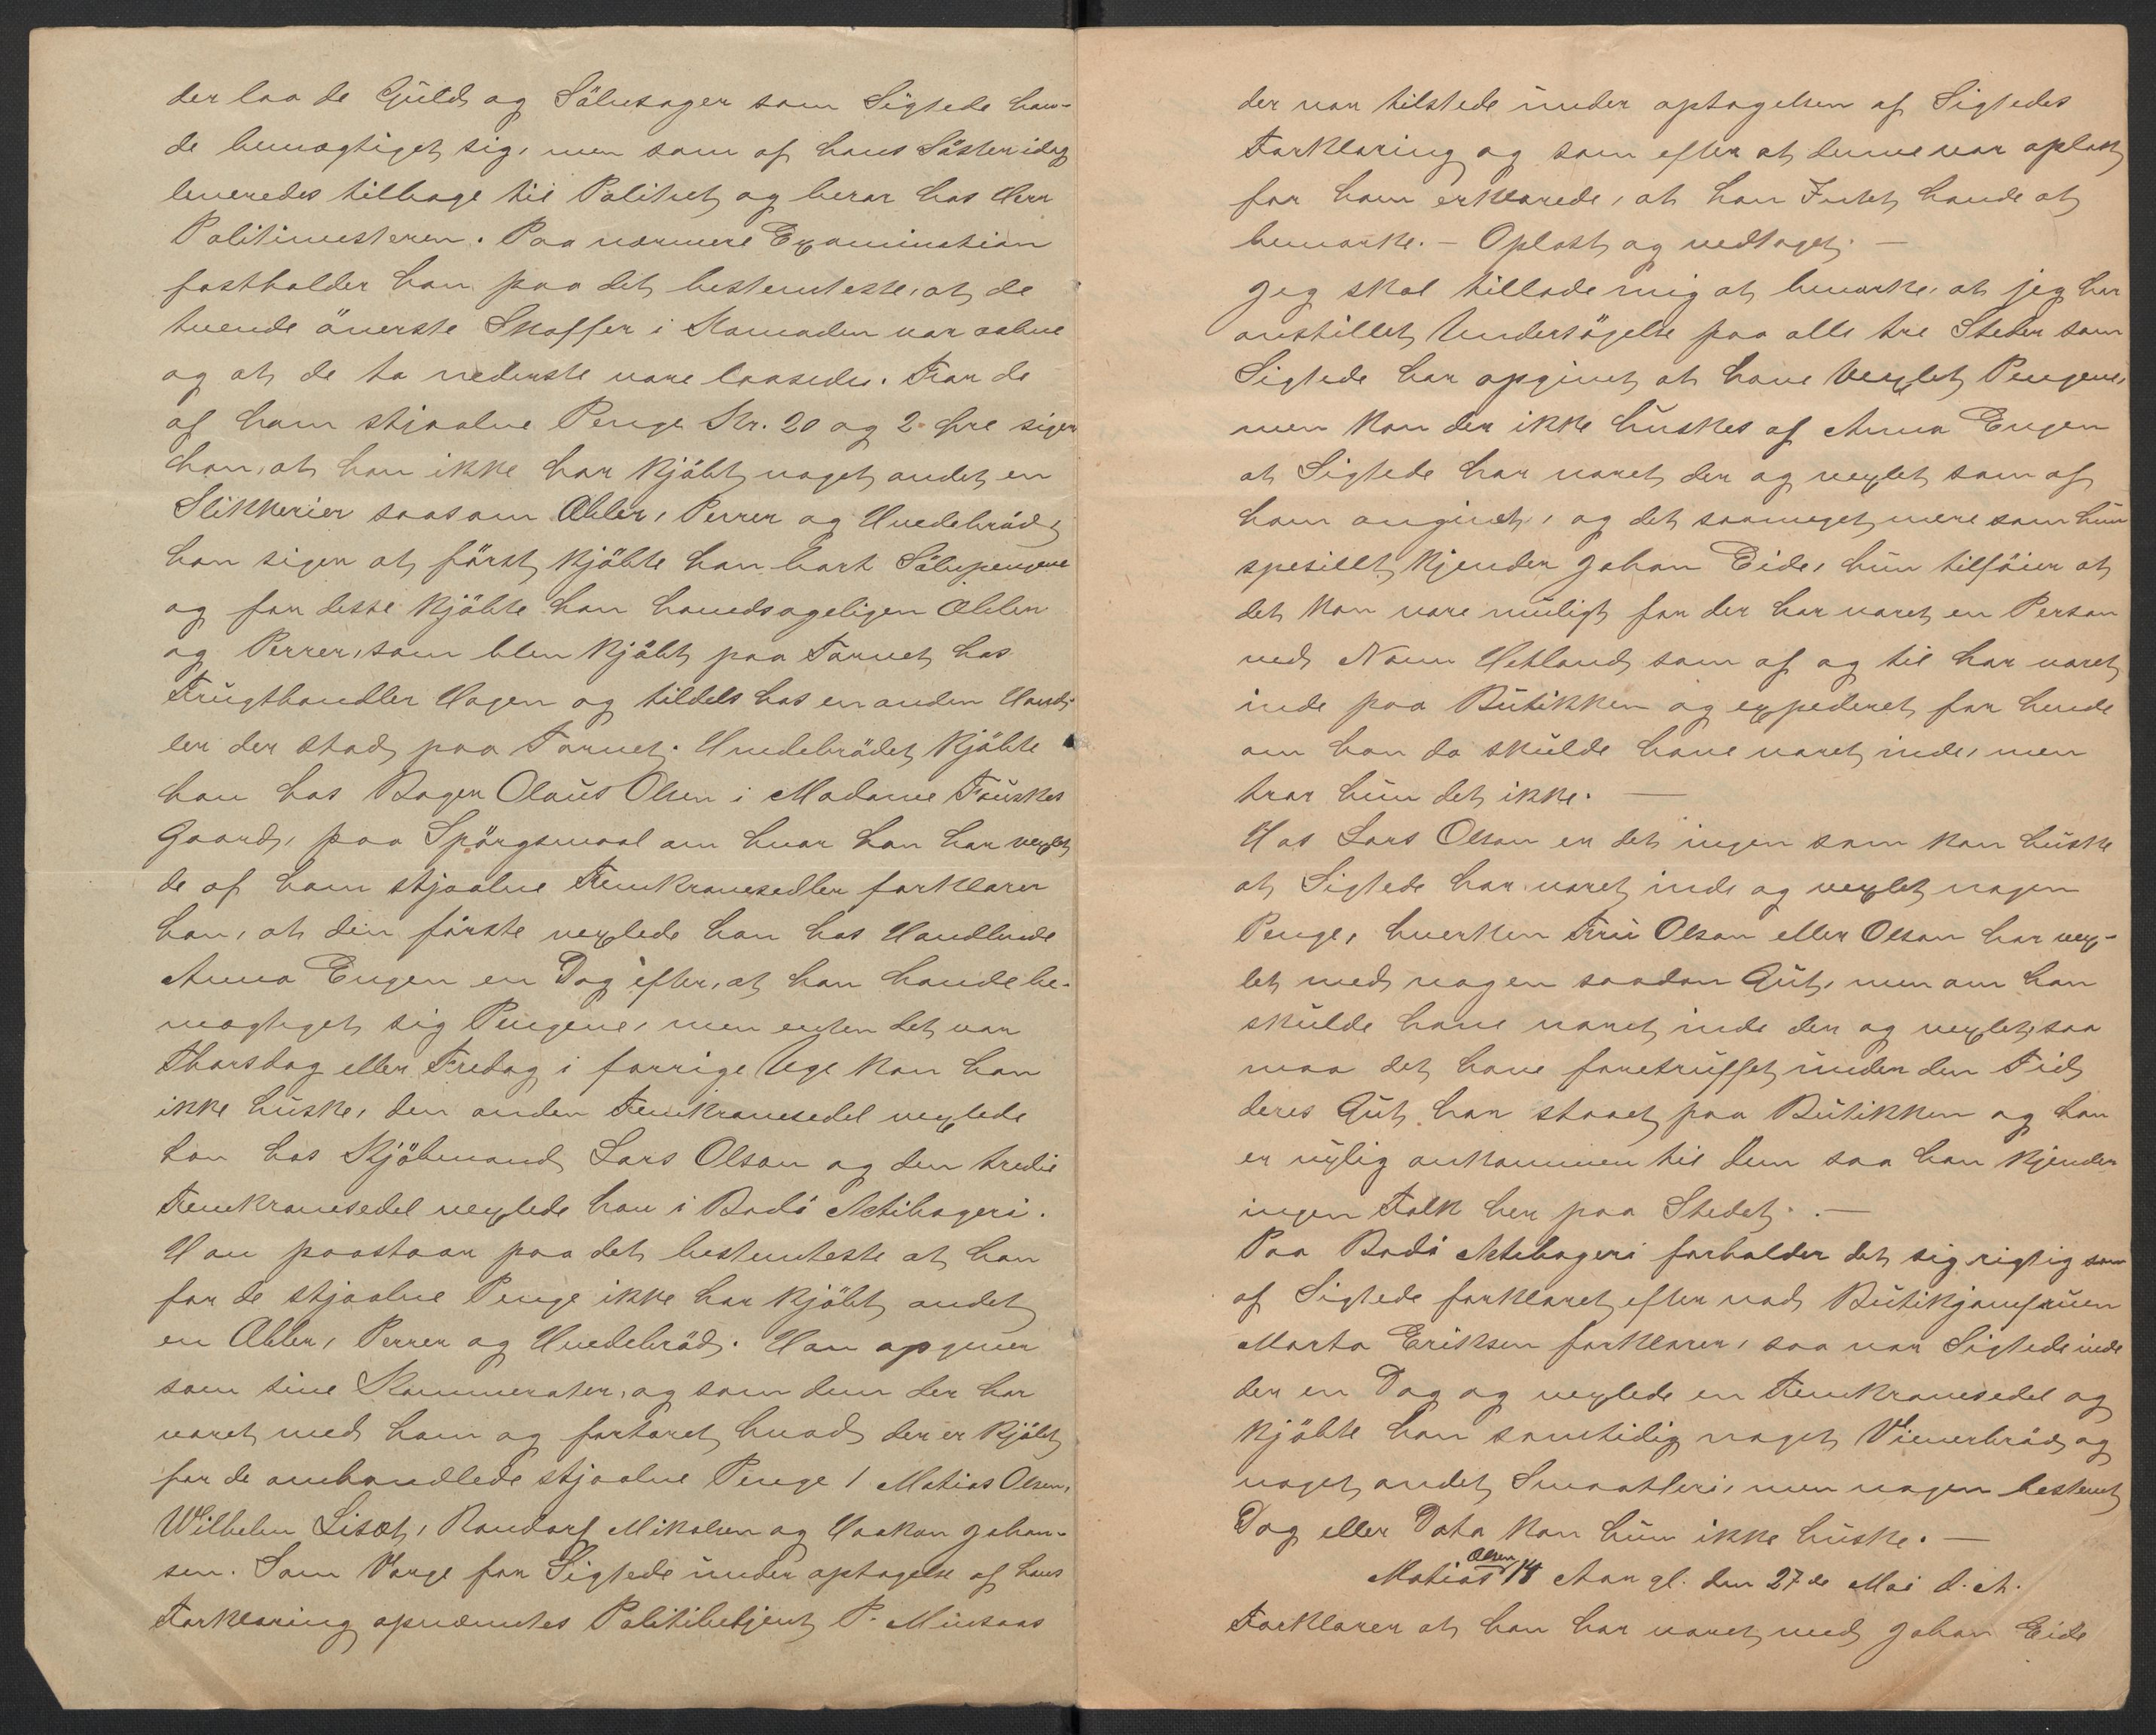 der laa de Guld og Sölvsager som Sigtede hav-
de bemægtiget sig, men som af hans Söster idag
leveredes tilbage til Politiet og beror hos Herr
Politimesteren. Paa nærmere Examination
fastholder han paa det bestemteste, at de
tvende överste Skuffer i Komoden var aabne
og at de to nederste vare laasede. For de
af ham stjaalne Penge Kr. 20 og 2 Øre siger
han, at han ikke har kjöbt noget andet en
Slikkerier saasom Æbler, Perrer og Hvedebröd,
han siger at först kjöbte han bort Sölvpengene
og for disse kjöbte han hovedsageligen Æbler
og Perrer, som blev kjöbt paa Torvet hos
Frugthandler Hagen og tildels hos en anden Hand-
ler der stod paa Torvet. Hvedebrödet kjöbte
han hos Bager Olaus Olsen i Madame Fauskes
Gaard, paa Spörgsmaal om hvor han har vexlet
de af ham stjaalne Femkronesedler forklarer
han, at den förste vexlede han hos Handlende
Anna Engen en Dag efter, at han havde be-
mægtiget sig Pengene, men enten det var
Thorsdag eller Fredag i forrige Uge kan han
ikke huske, den anden Femkronesedel vexlede
han hos Kjöbmand Lars Olson og den tredie
Femkronesedel vexlede han i Bodö Aktibageri.
Han paastaar paa det bestemteste at han
for de stjaalne Penge ikke har kjöbt andet
en Æbler, Perrer og Hvedebröd. Han opgiver
som sine Kammerater, og som dem der har
været med ham og fortæret hvad der er kjöbt
for de omhandlede stjaalne Penge / Matias Olsen,
Wilhelm Lisæt, Rondorf Mikalsen og Haakon Johan-
sen. Som Værge for Sigtede under optagelse af hans
Forklaring opnævntes Politibetjent P. Musaas
der var tilstede under optagelsen af Sigtedes
Forklaring og som efter at denne var oplæst
for ham erklærede, at han Intet havde at
bemærke. — Oplæst og vedtaget. —
Jeg skal tillade mig at bemærke, at jeg har
anstillet Undersögelse paa alle tre Steder som
Sigtede har opgivet at have vexlet Pengene,
men kan der ikke huskes af Anna Engen
at Sigtede har været der og vexlet som af
ham angivet, og det saameget mere som hun
spesillt kjender Johan Eide, hun tilföier at
det kan være muligt for der har været en Person
ved Navn Hetland som af og til har været
inde paa Butikken og expederet for hende
om han da skulde have været inde, men
tror hun det ikke. —
Hos Lars Olson er det ingen som kan huske
at Sigtede har været inde og vexlet nogen
Penge, hverken Fru Olson eller Olson har vex-
let med nogen saadan Gut, men om han
skulde have været inde der og vexlet, saa
maa det have foretruffet under den Tid
deres Gut har staaet paa Butikken og han
er nylig ankommen til dem saa han kjender
ingen Folk her paa Stedet. —
Paa Bodö Aktibageri forholder det sig rigtig som
af Sigtede forklaret, efter vad Butikjomfruen
Marta Eriksen forklarer, saa var Sigtede inde
der en Dag og vexlede en Femkronesedel og
kjöbte han samtidig noget Vienerbröd og
noget andet Smaatteri, men nogen bestemt
Dag eller Dato kan hun ikke huske. —
Matias Olsen 14 Aar gl. den 27de Mai d. A.
Forklarer at han har været med Johan Eide